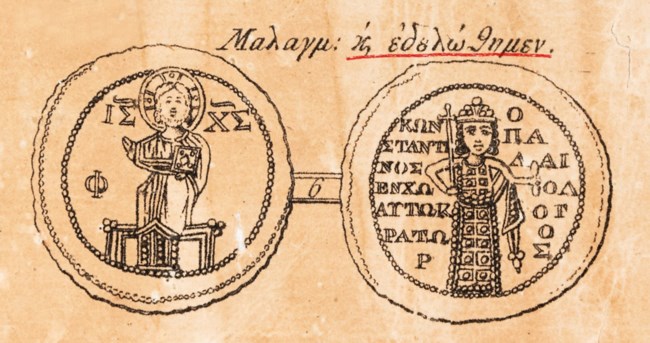 Μαλαγμ: ϗ́ εδελώθημεν.
ΙΣ ΧΣ
Φ
6
ΚΩΝ
ΣΤΑΝΤΙ
ΝΟΣ
ΕΝΧΩ
ΑΥΤΩΚ
ΡΑΤΩ
Ρ
Ο
ΠΑ
ΛΑΙ
ΟΛ
ΟΓ
Ο
Σ